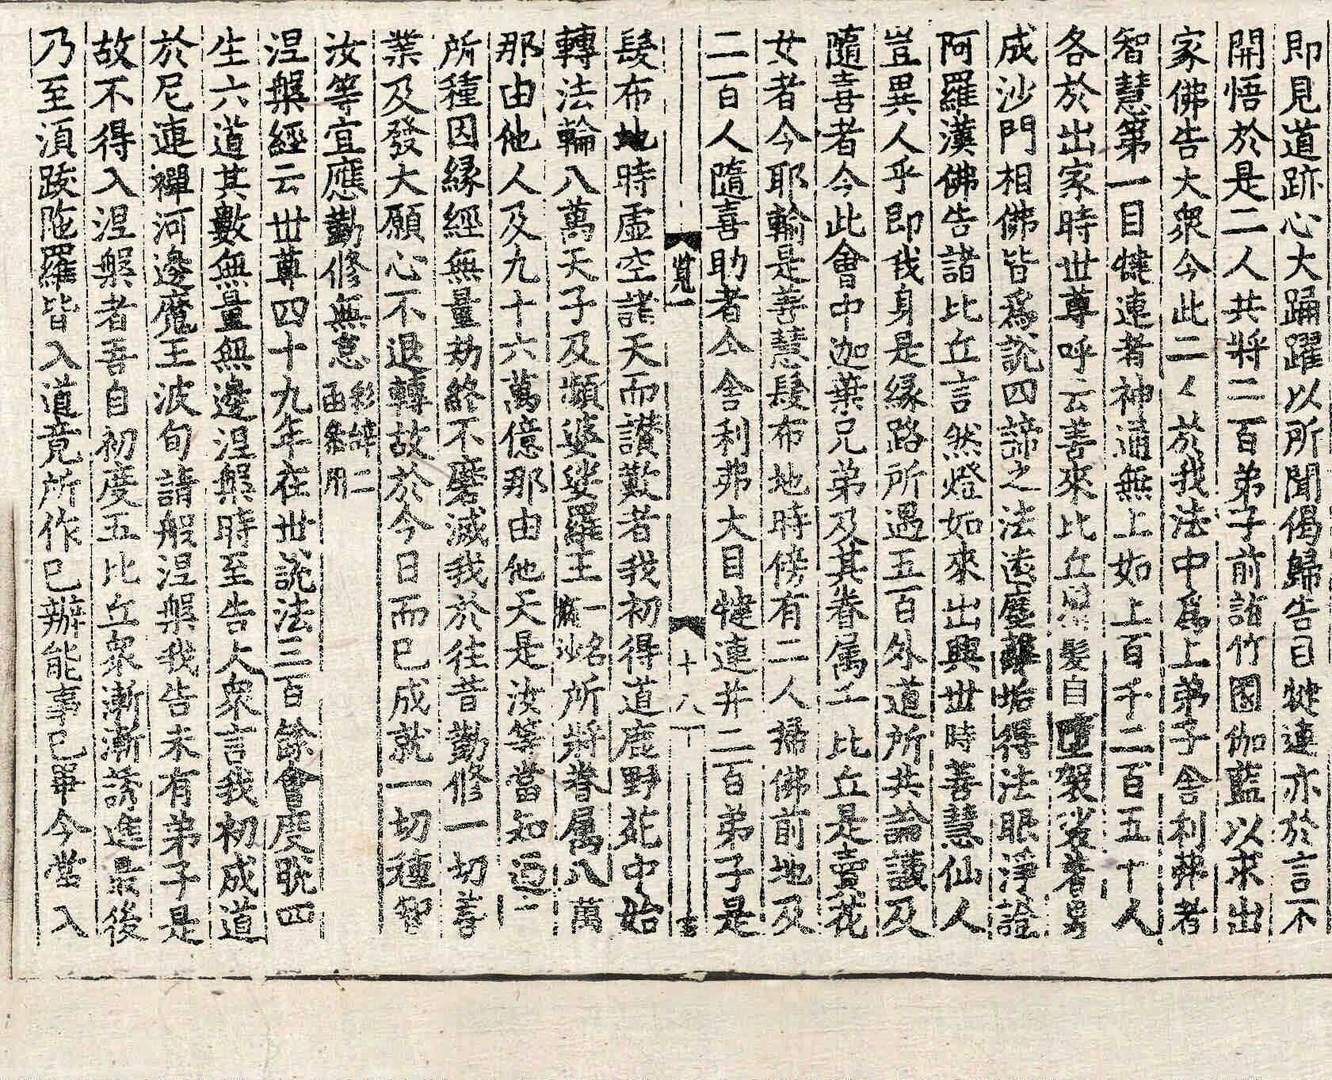 即見道跡心大踊躍以所聞偈歸告目犍連亦於言下
開悟於是二人共將二百弟子前詣竹園伽藍以求出
家佛告大衆今此二人於我法中爲上弟子舍利弗者
智慧第一目犍連者神通無上如上百千二百五十人
各於出家時世尊呼云善來比丘鬚髮自墮袈裟著身
成沙門相佛皆爲說四諦之法遠塵離垢得法眼淨證
阿羅漢佛告諸比丘言然燈如來出興世時善慧仙人
豈異人乎即我身是緣路所遇五百外道所共論議及
隨喜者今此會中迦葉兄弟及其眷属千比丘是賣花
女者今耶輸是善慧髮布地時傍有二人掃佛前地及
二百人隨喜助者今舍利弗大目犍連并二百弟子是
覚一
十八
髮布地時虛空諸天而讃歎者我初得道鹿野苑中始
轉法輪八萬天子及頻婆娑羅王一名瓶沙所將眷属八萬
那由他人及九十六萬億那由他天是汝等當知過去
所種因緣經無量劫終不磨滅我於往昔勤修一切善
業及發大願心不退轉故於今日而已成就一切種智
汝等宜應勤修無怠
涅槃經云世尊四十九年在世說法三百餘會度脱四
生六道其數無量無邊涅槃時至告大衆言我初成道
於尼連禪河邊魔王波旬請般涅槃我告未有弟子是
故不得入涅槃者吾自初度五比丘衆漸漸誘進最後
乃至湏跋陁羅皆入道竟所作已辦能事已畢今當入